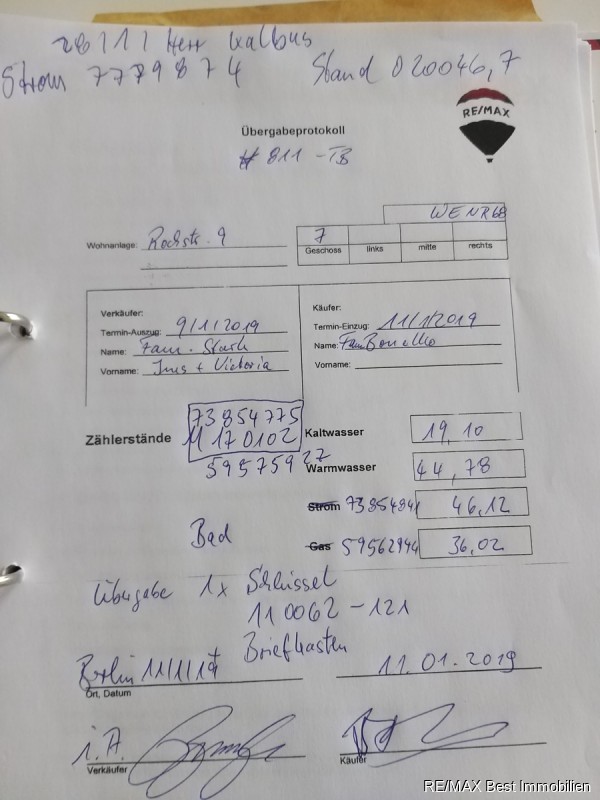 28/1/1 Herr Kalbus
Strom 7779874 Stand 020046,7
RE/MAX
Übergabeprotokoll
# 811 - TB
WE NR 68
Wohnanlage: Rochstr. 9
7
Geschoss links mitte rechts
Verkäufer:
Termin-Auszug: 9/1/2019
Name: Fam. Stark
Vorname: Ines + Victoria
Käufer:
Termin-Einzug: 11/1/2019
Name: Fam
Vorname:
Zählerstände
73854775
M170102
59575927
Kaltwasser 19,10
Warmwasser 44,78
Strom 73854841 46,12
Bad
Gas 59562944 36,02
Übergabe 1x Schlüssel
110062-121
Briefkasten
Berlin 11/1/19
11.01.2019
Ort, Datum
i.A.
Verkäufer
Käufer
RE/MAX Best Immobilien